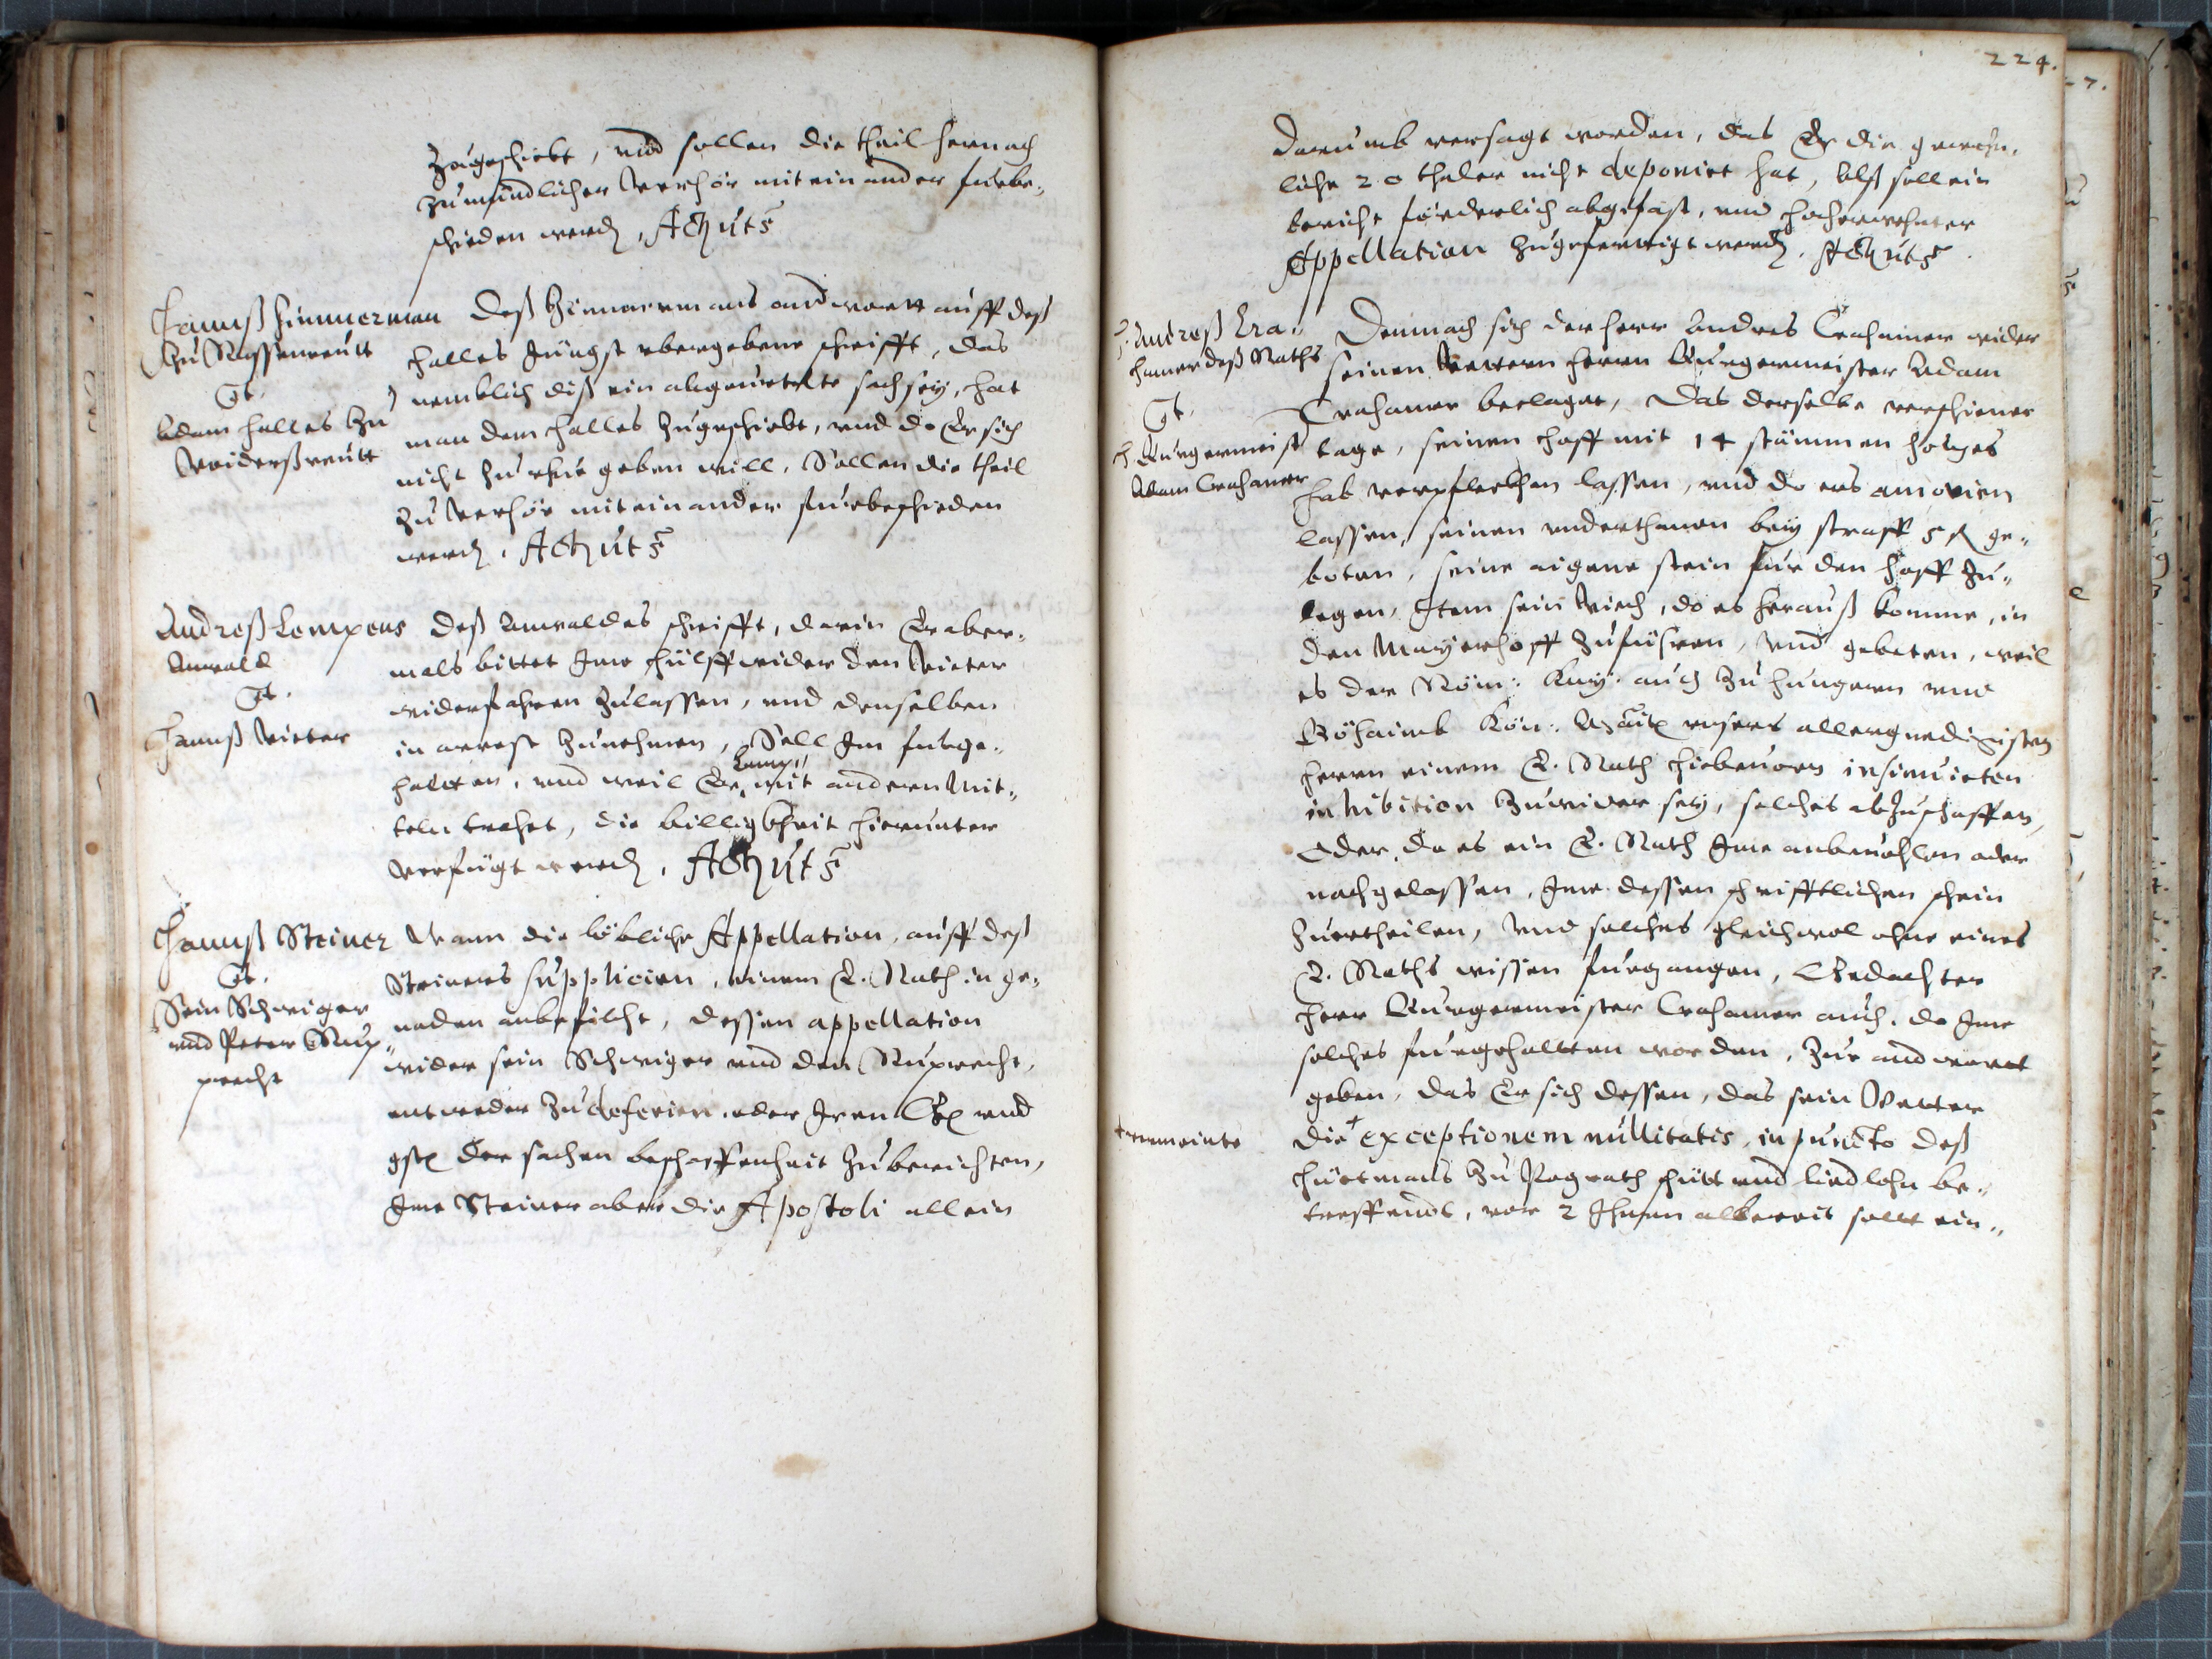 zugeschickt, und sollen die theil hernach
zu mündlicher verhör mit einander fürbe„
schieden werdn, Act ut s
Hannß Zimmerman
zu Nassenreutt
Ct.
Adam Halles zu
Woiderßreutt
Deß Zimmermans andtwortt auff deß
Halles jüngst ubergebene schrifft, das
nemblich diß ein abgeurtelte sach sey, hat
man dem Halles zugeschickt, und do Er sich
nicht zu rhue geben will, Sollen die theil
zu verhör mit einander fürbeschieden
werdn. Act ut s
Andreß Lempens
Anwald
Ct.
Hannß Vieter
Deß Anwaldes schrifft, darin Er aber„
mals bittet Ime hülff wider den Vieter
widerfahren zulassen, und denselben
in arrest zunehmen, Soll Im fürge„
haltten, und weil Er mit andern Mit„
teln trohet, die billigkheit hierunter
verfügt werdn. Act ut s
Hannß Steiner
Ct.
Sein Schwiger
und Peter Rup„
precht
Wann die löbliche Appellation, auff deß
Steiners supplicirn, einem E. Rath in ge„
naden anbefilcht, dessen appellation
wider sein Schwiger und den Ruprecht,
entweder zu deferirn, oder Iren
der sachen beschaffenheit zuberichten,
Ime Steiner aber die Apostoli allein
224.
darumb versagt worden, das Er die gewöhn„
liche 20 thaler nicht deponirt hat, Alß soll ein
bericht förderlich abgefast, und hocherwehnter
Appellation zugefertigt werdn. Act ut s
H. Andreß Cra„
hamer deß Raths
Ct.
H. Burgermeist
Adam Crahamer
Demnach sich der Herr Andres Crahamer wider
seinen Vettern Herrn Burgermeister Adam
Crahamer beclaget, Das derselbe verschiener
tage, seinen Hoff mit 14 stämmen holzes
hab verpflockhen lassen, und do ers amovirn
lassen, seinen underthanen bey straff 5 ß ge„
boten, seine aigene stein für den Hoff zu„
legen, Item sein Viech, do es herauß komme, in
den Mayerhoff zuführen, Und gebeten, weil
es der Röm: Kay: auch zu Hungern und
Böhaimb Kön: Maytt unsers allergnedigisten
Herrn einem E. Rath hiebevorn insinuirten
inhibition zuwider sey, solches abzuschaffen,
Oder, da es ein E. Rath Ime anbevohlen oder
nachgelassen, Ime dessen schrifftlichen schein
zuertheilen, Und solches gleichwol ohne eines
E. Raths wissen fürgangen, Gedachter
Herr Burgermeister Crahamer auch, do Ime
solches fürgehaltten worden, zur andtwort
geben, das Er sich dessen, das sein Vetter
+vermeinte
die + exceptionem nullitatis, in puncto deß
Hüttmans zu Pograth hütt und liedlohn be„
treffendt, vor 2 Ihnen albereit sollt ein„